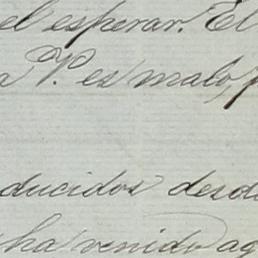 el esperar. El
a V. es malo, p
ducidos desde
ha venido aq